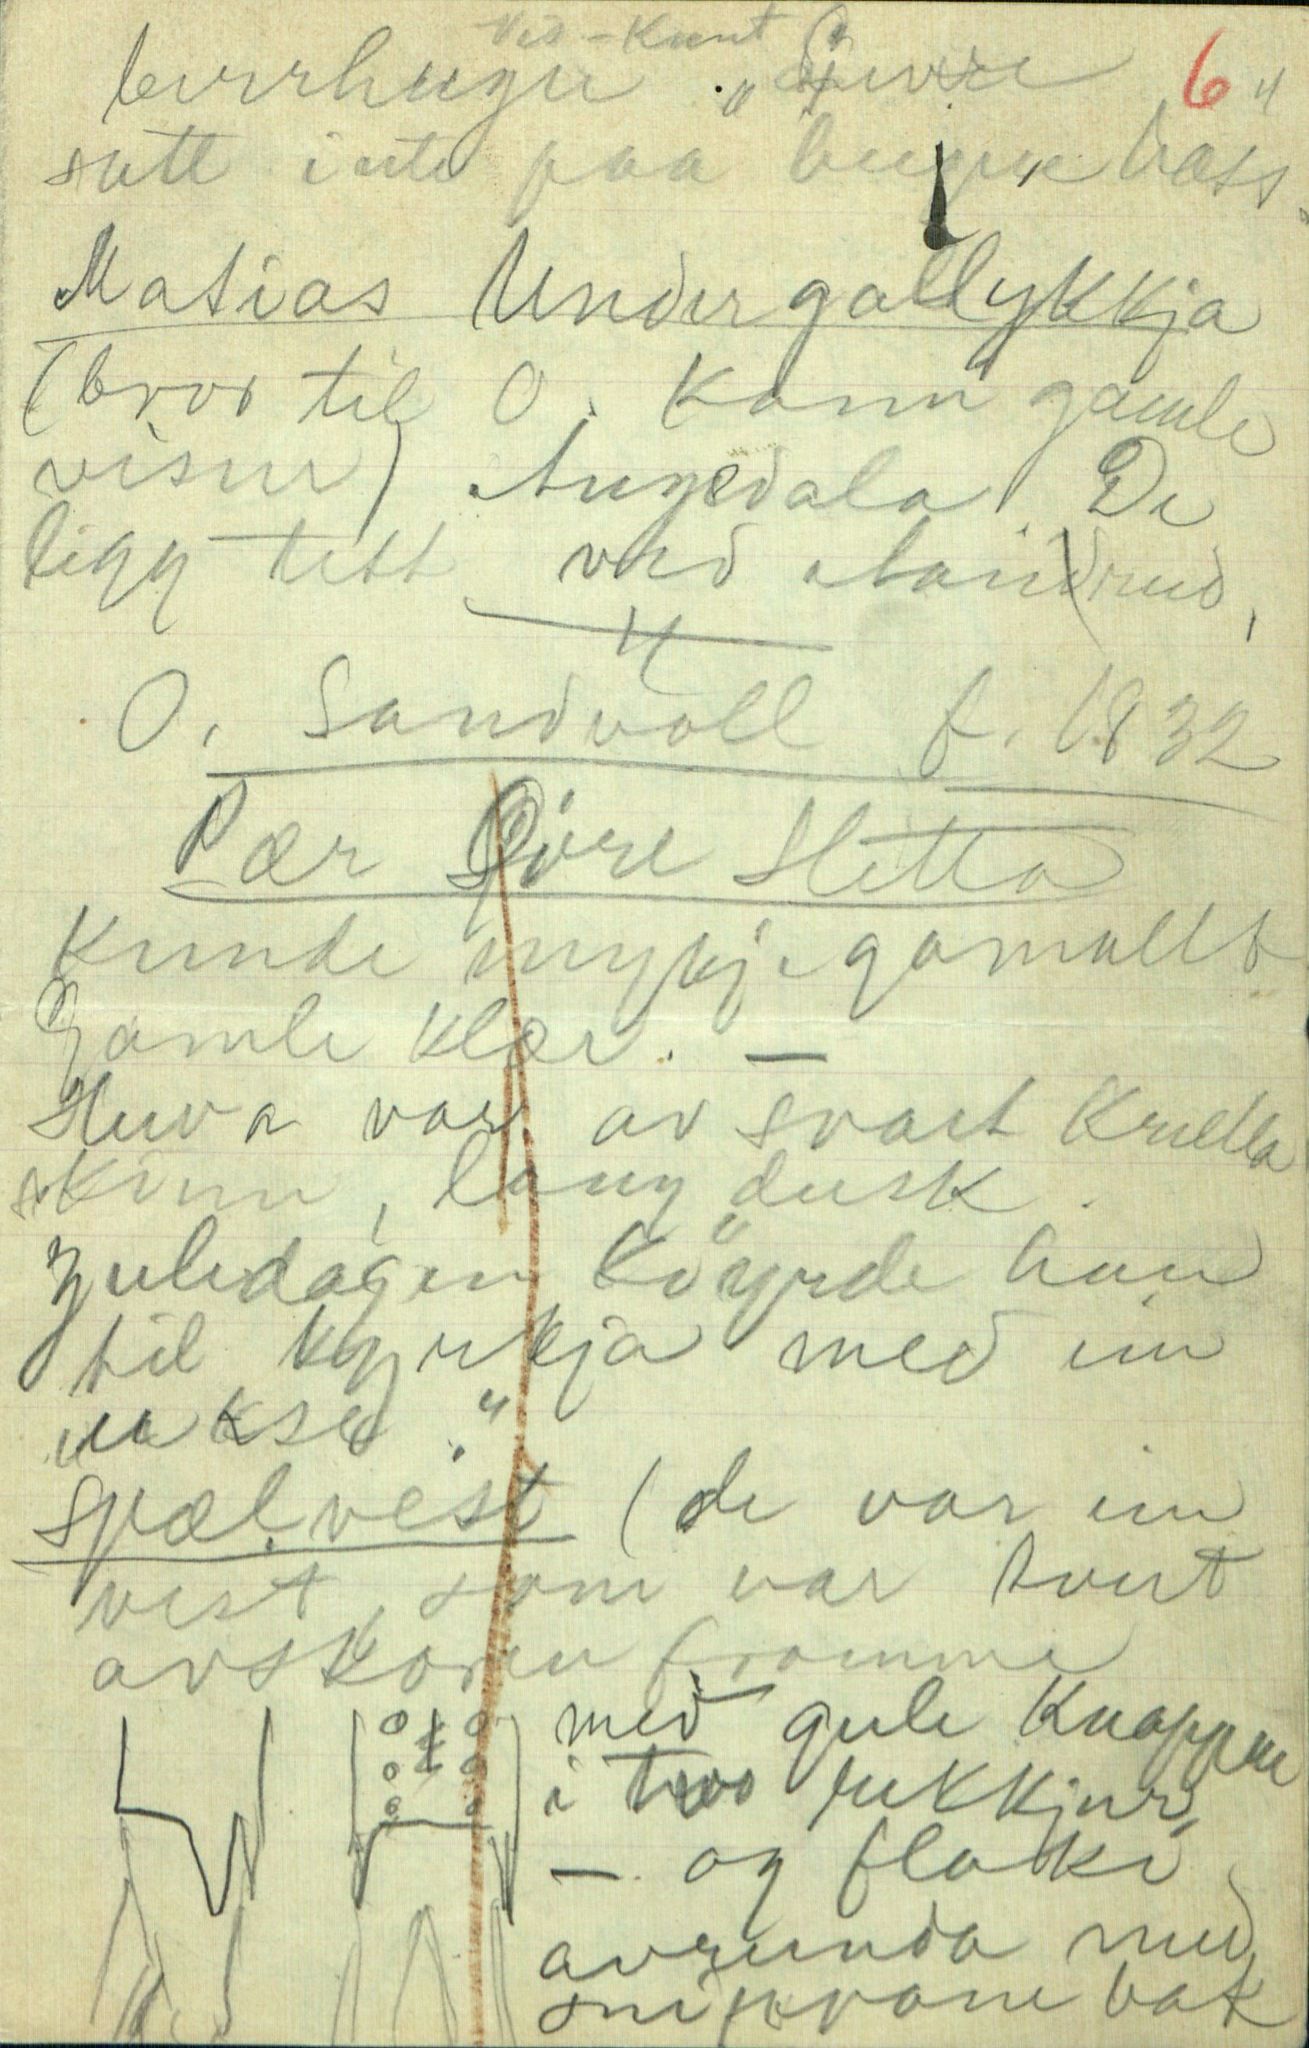 6
satt inte paa
Matias Undergallykkja
(bror til O. Kann gamle
visur) Augedala De
ligg tett ved
O. Sandvoll f. 1832
Pær Øvre Sletta
Kunde mykje gamallt
Gamle klær. —
Huva var av svart Krulla
skinn, lang dusk.
Juledagen köyrde han
til kyrkja med ein
uksa."
Spælvest (de var ein
vest, som var tvert
avskoren framme
med gule Knappar
i two rekkjur,
— og flake
avrunda med
snipvane bak